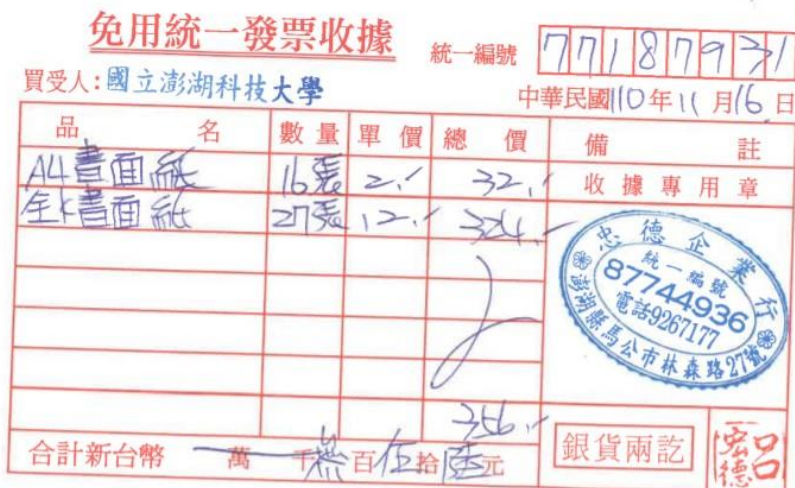 免用統一發票收據
統一編號 77187931
買受人：國立澎湖科技大學
中華民國110年11月16日
品名 數量 單價 總價 備註
A4書面紙 16張 2.- 32.-
收據專用章
全K書面紙 27張 12.- 324.-
忠德企業行
統一編號
87744936
電話9267177
澎湖縣馬公市林森路27號
356.-
合計新台幣 萬 千叁百伍拾陸元
銀貨兩訖
呂宏德